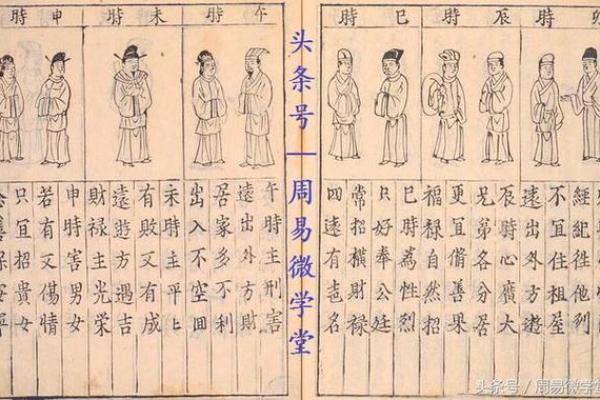 卯
時
辰時
巳時
午時
未時
申時
經紀徃他列
不宜住祖屋
遠出外方遊
辰時心廣大
兄弟各分居
更宜脩善果
福禄自然招
巳時為性烈
只好奉公廷
常招橫財禄
四遠有名
头条号—周易微学堂
午時主刑害
遠出外方財
居家多不利
出入不空回
未時主平上
有敗又有成
遠遊方遇吉
財禄主光荣
申時害男女
若有又傷情
只宜招貴女
头条号 / 周易微学堂